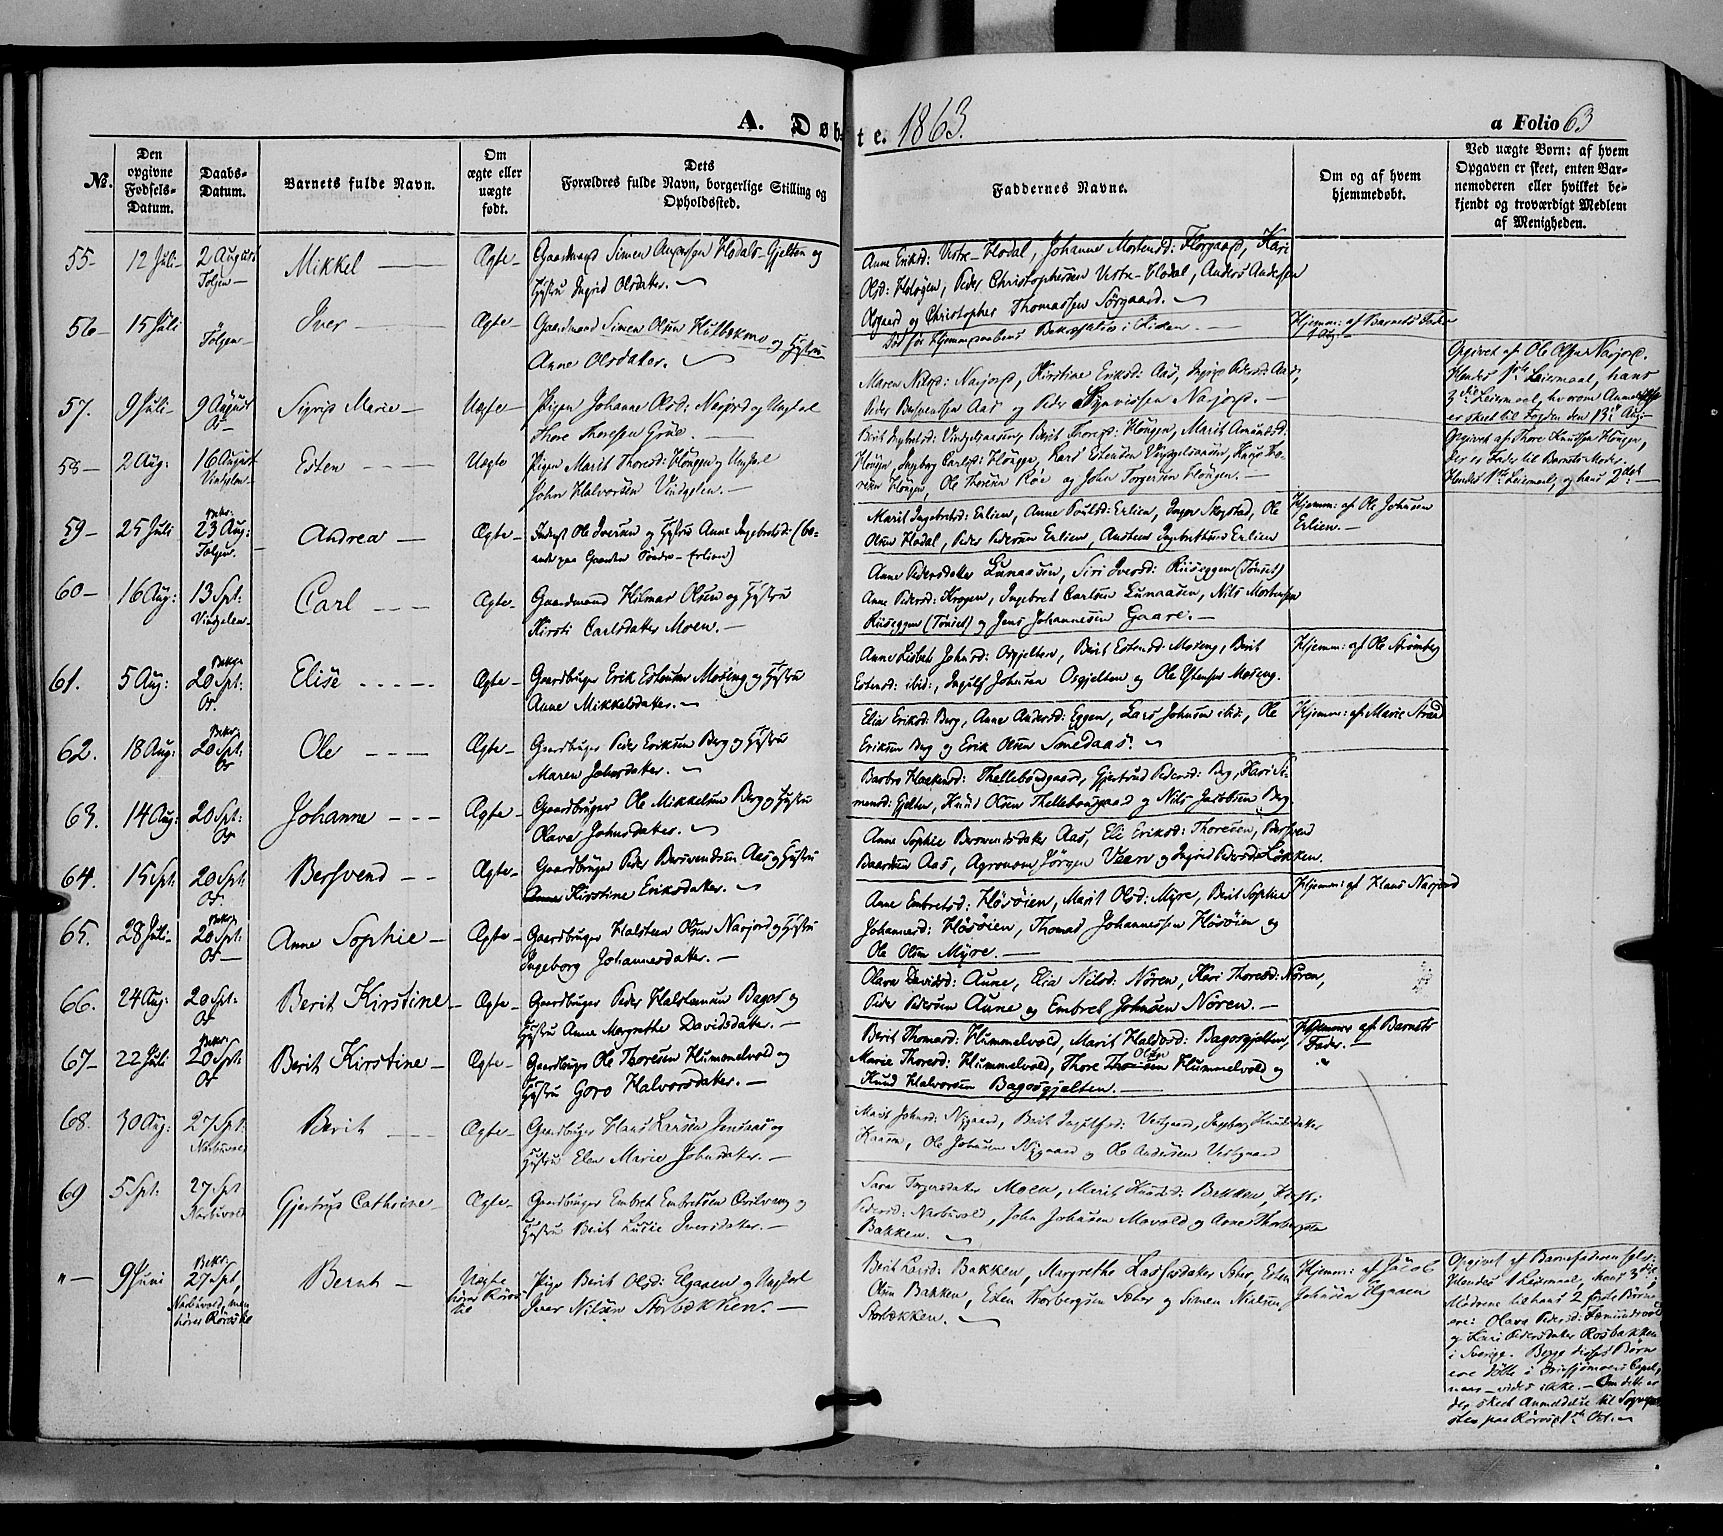 A. Døb-
te. 1863.
a Folio 63
No.
Den opgivne Fødsels-Datum.
Daabs-Datum.
Barnets fulde Navn.
Om ægte eller uægte født.
Dets
Forældres fulde Navn, borgerlige Stilling og
Opholdssted.
Faddernes Navne.
Om og af hvem
hjemmedøbt.
Ved uægte Børn: af hvem
Opgaven er skeet, enten Bar-
nemoderen eller hvilket be-
kjendt og troværdigt Medlem
af Menigheden.
55- 12 Juli- 2 August Mikkel Ægte- Gaardmand Simen Hodals-Gjelten og
Tolgen- Hustru Ingrid Olsdatter.
Anne Eriksd: Vestre-Hodal, Johanne Mortensd: Florgaard, Kari
Olsd: Peder Christophersen Vestre-Hodal, Anders Andersen
og Christopher Thomassen Sørgaard.
56- 15 Juli Tolgen- Iver Ægte- Gaardmand Simen Olsen og Hustru
Anne Olsdatter.
Død før i Kirken.
Hjemm: af Barnets Fader
57. 9 Juli- 9 August Os- Sigrid Marie- Uægte- Pigen Johanne Olsd: Narjord og Ungkarl
Thore Thoresen Grue.
Maren Nilsd: Narjord, Kirstine Eriksd: Aas, Ingrid Pedersd: Aas,
Peder Aas og Peder Narjord.
Opgivet af Ole Olsen Narjord.
Hendes 1ste Leiermaal, hans
3die Leiermaal, hvorom Anmeldelse
er skeet til Fogden den 13de Aug:
58- 2 Aug: 16 August Vingelen- Esten Uægte Pigen Marit Thoresd: og Ungkarl
John Halvorsen Vingelen.
Berit Thoresd: Marit Amundsd:
Ingeborg Carlsd: Lars Estensen
Ole Thoresen Røe og John Torgersen
Opgivet af Thore Knudsen
der er Fader til Barnets Moder.
Hendes 1ste Leiermaal, og hans 2det
59- 25 Juli Bekr: 23 Aug: Tolgen Andrea Ægte- Inderst Ole Iversen og Hustru Anne Ingebretsd: (bo-
ende paa Gaarden Søndre-Erlien)
Marit Ingebretsd: Erlien, Anne Poulsd: Erlien, Inger Skogstad, Ole
Olsen Hodal, Peder Pedersen Erlien, Austen Ingebretsen Erlien
Hjemm: af Ole Johnsen
Erlien.
60- 16 Aug: 13 Spt: Vingelen Carl Ægte- Gaardmand Hilmar Olsen og Hustru
Kirsti Carlsdatter Moen.
Anne Pedersdatter Lunaasen, Siri Iversd: Riiseggen (Tønset)
Anne Pedersd: Krogen, Ingebret Carlsen Lunaasen, Nils Mortensen
Riiseggen (Tønset) og Jens Johannesen Gaare.
61. 5 Aug: Bekr 20 Spt: Os Elise Ægte- Gaardbruger Erik Estensen Moseng og Hustru
Anne Mikkelsdatter.
Anne Lisbet Johnsd: Osgjelten, Berit Estensd: Moseng, Berit
Estensd: ibid:, Ingulf Johnsen Osgjelten og Ole Estensen Moseng.
Hjemm: af Ole Strømberg
62. 18 Aug: Bekr. 20 Spt: Os Ole Ægte- Gaardbruger Peder Eriksen Berg og Hustru
Maren Johnsdatter.
Elia Eriksd: Berg, Anne Andersd: Eggen, Lars Johnsen ibid:, Ole
Eriksen Berg og Erik Olsen Smedaas.
Hjemm: af Marie Strand
63. 14 Aug: 20 Spt: Os Johanne Ægte- Gaardbruger Ole Mikkelsen Berg og Hustru
Olava Johnsdatter.
Barbro Haakensd: Thellebondgaard, Gjertrud Pedersd: Berg, Kari Si-
mensd: Gjelten, Knud Olsen Thellebongaard og Nils Jacobsen Berg
64. 15 Spt: 20 Spt Os- Bersvend Ægte- Gaardbruger Peder Bersvendsen Aas og Hustru
Kirstine Eriksdatter.
Anne Sophie Bersvendsdatter Aas, Eli Eriksd: Thoresen, Bersvend
Baardsen Aas, Agronom Jørgen Veen og Ingrid Pedersd: Løkken.
65. 28 Juli- Bekr. 20 Spt: Os- Anne Sophie- Ægte- Gaardbruger Halsteen Olsen Narjord og Hustru
Ingeborg Johannesdatter.
Anne Embretsd: Høsøien, Marit Olsd: Myre, Berit Sophie
Johannesd: Høsøien, Thomas Johannessen Høsøien og
Ole Olsen Myre.
Hjemm: af Hans Narjord
66. 24 Aug: 20 Spt: Os Berit Kirstine- Ægte- Gaardbruger Peder Halstensen Bagos og
Hustru Anne Margrethe Davidsdatter.
Olava Davidsd: Aune, Elia Nilsd: Nøren, Kari Thoresd: Nøren,
Peder Pedersen Aune og Embret Johnsen Nøren.
67- 22 Juli Bekr 20 Spt: Os Berit Kirstine- Ægte- Gaardbruger Ole Thoresen Hummelvold og
Hustru Goro Halvorsdatter.
Berit Thomasd: Hummelvold, Marit Halvorsd: Bagosgjelten,
Marie Thoresd: Hummelvold, Thore Olsen Hummelvold og
Knud Halvorsen Bagosgjelten.
Hjemme af Barnets
Fader.
68. 30 Aug: 27 Spt: Narbuvold Berit Ægte- Gaardbruger Hans Larsen og
Hustru Elen Marie Johnsdatter.
Marit Johnsd: Nygaard, Berit Ingulfsd: Vestgaard, Ingeborg Knudsdatter
Ole Johnsen Nygaard og Ole Andersen Vestgaard
69 5 Spt: 27 Spt Narbuvold Gjertrud Cathrine- Ægte- Gaardbruger Embret Embretsen og
Hustru Berit Lucie Iversdatter.
Sara Torgersdatter Moen, Marit Knudsd: Bakken, Kirsti
Pedersd: Narbuvold, John Johnsen Movold og Arne Thorbergsen
Bakken.
" 9 Juni Bekr. 27 Spt, Narbuvold, men hører Røraas til Bernt Uægte hører Røraas til Pige Berit Olsd: Elgaaen og Ungkarl
Iver Nilsen Storbækken.
Berit Larsd: Bakken, Margrethe Lassesdatter Sæter, Esten
Olsen Bakken, Esten Thorbergsen Sæter og Simen Nielsen
Storbækken.
Hjemm: af Jacob
Johnsen Elgaaen
Opgivet af Barnefaderen selv:
Hendes 1 Leiermaal, hans 3die;
Mødrene til hans 2 første Børn
ere: Olava Pedersd: Femundsvold
og Kari Pedersdatter Rosbakken
i Sverige. Begge disse Børn
ere døbte i Capel,
naar-vides ikke.- Om dette er
der skeet Anmeldelse til Sognepræ-
sten paa Røraas 1ste Oct.